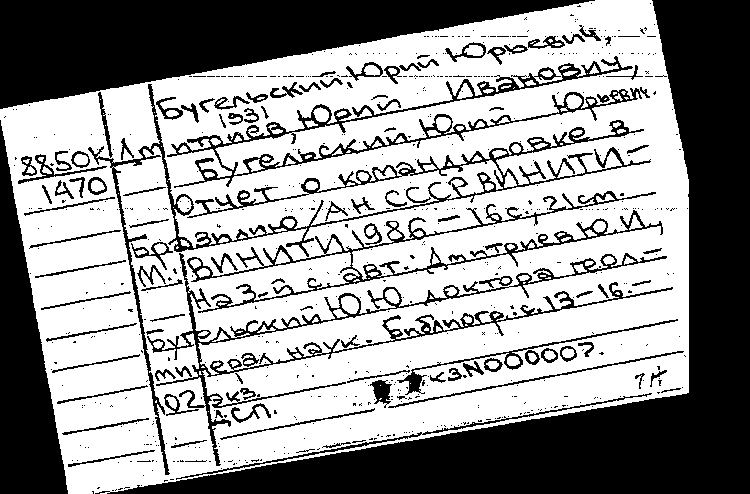 Бугельский, Юрий Юрьевич,
1931
88.50К Дмитриев, Юрий Иванович,
1470 Бугельский, Юрий Юрьевич.
Отчет о командировке в
Бразилию / АН СССР, ВИНИТИ.-
М.: ВИНИТИ, 1986.- 16 с.; 21 см.
На 3-й с. авт.: Дмитриев Ю.И.,
Бугельский Ю.Ю. доктора геол.-
минерал наук. Библиогр.: с. 13-16.-
102 экз
ДСП. <3.N000007.